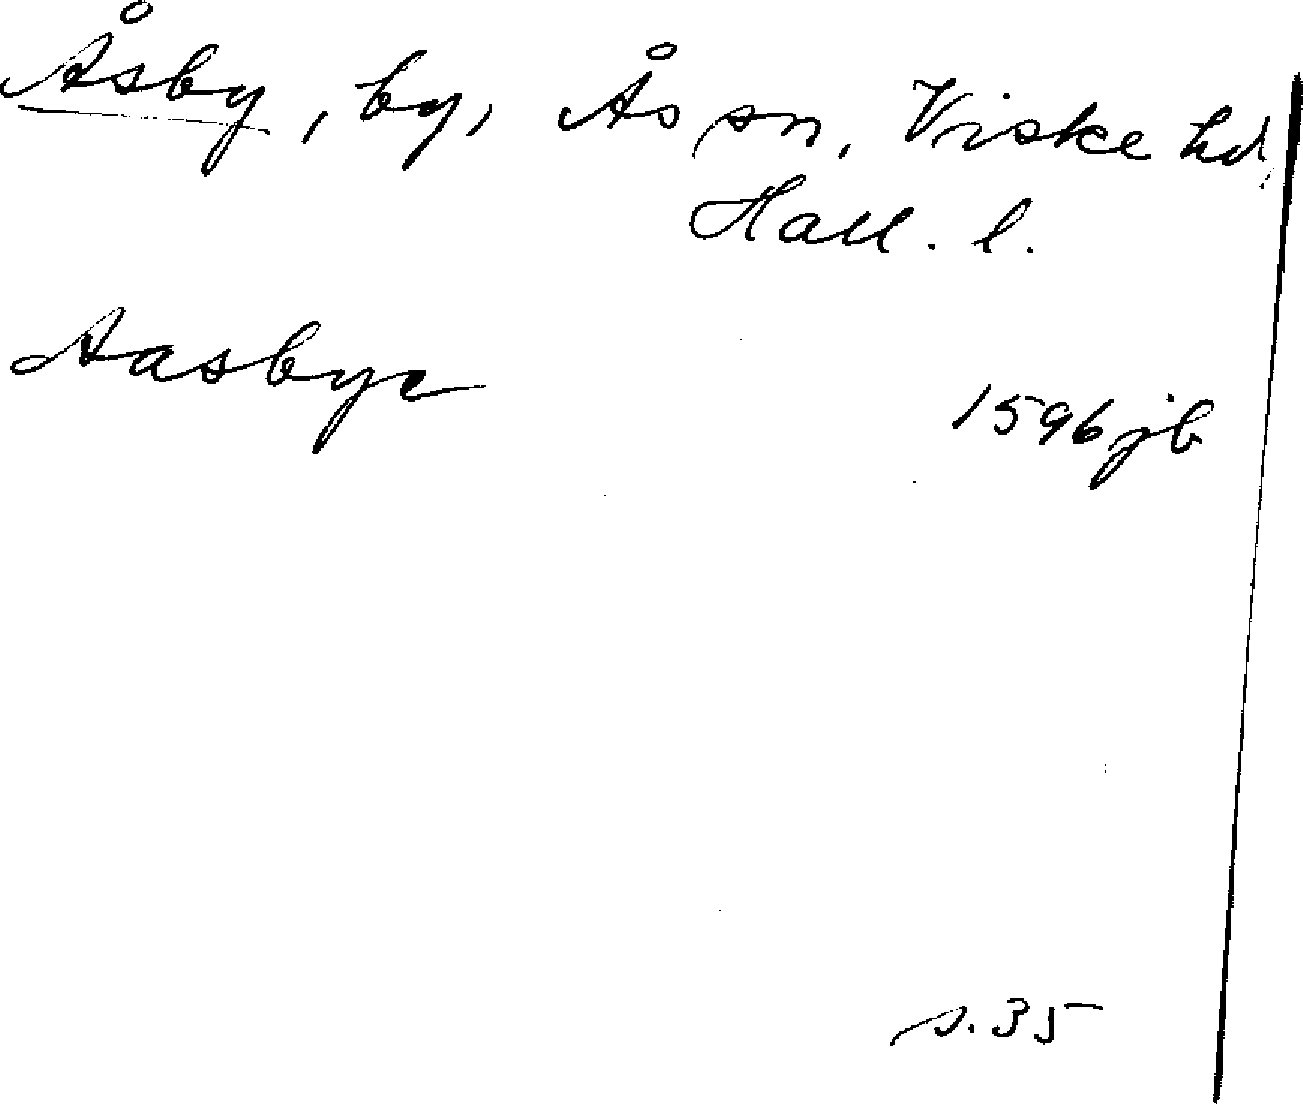 Åsby, by, Ås sn, Viske hd,
Hall. l.
Aasbye
1596 jb
s. 35